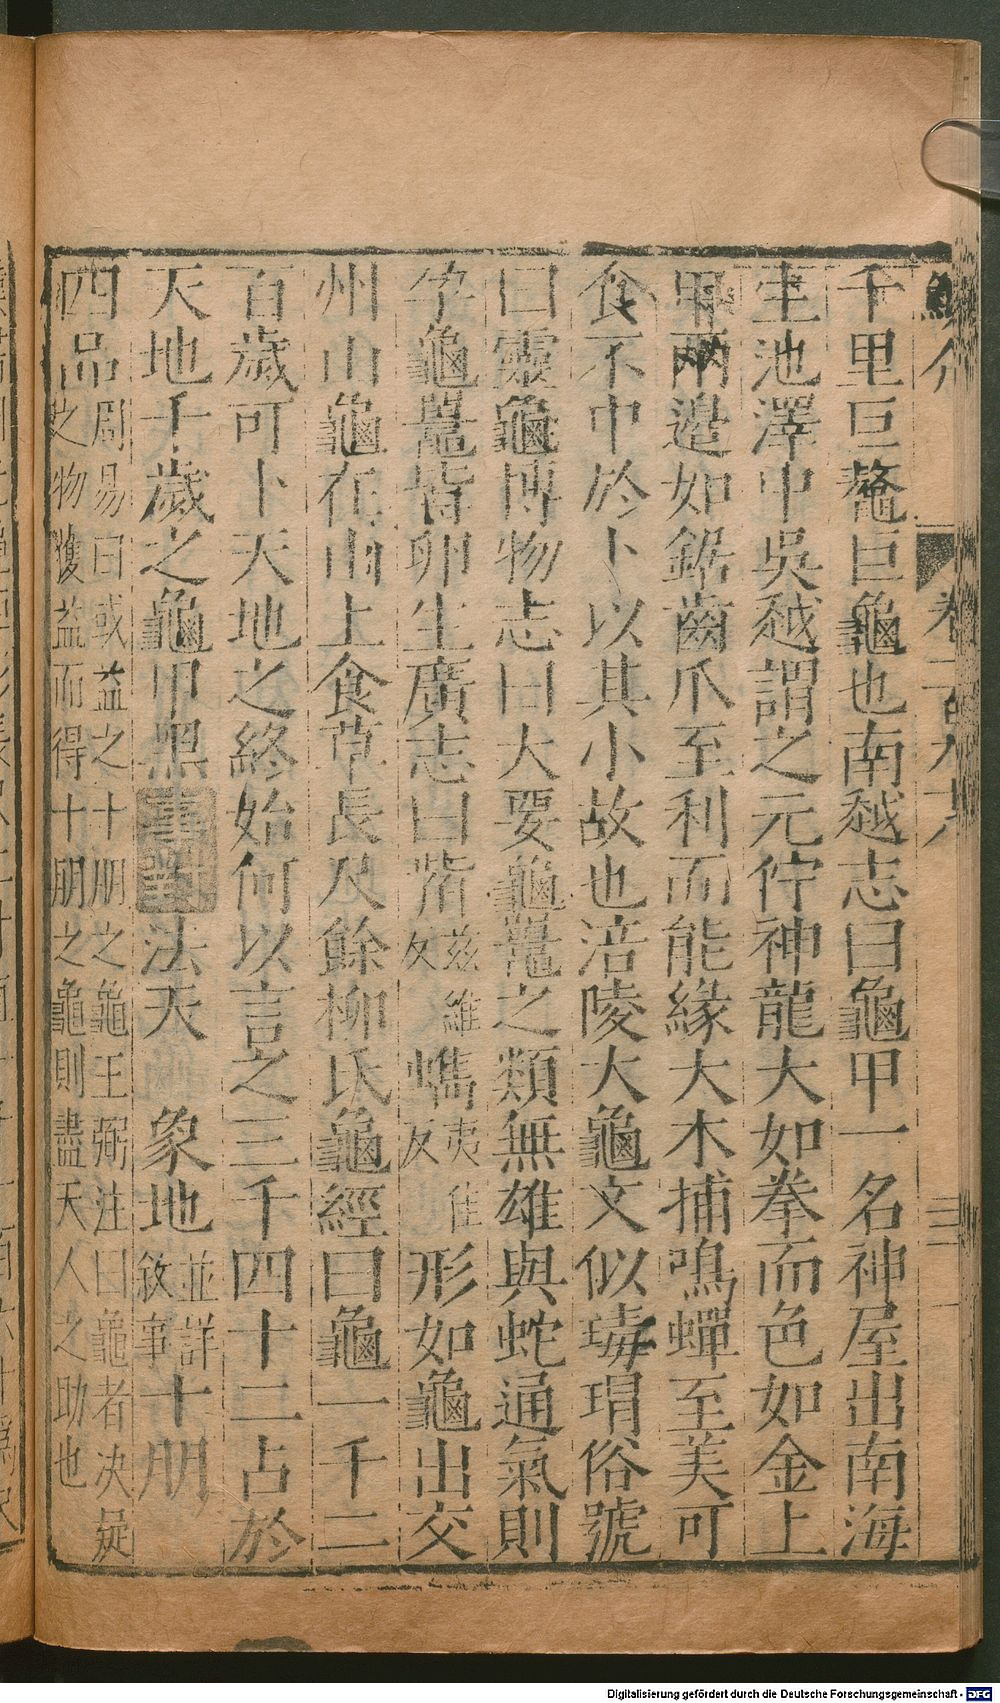 千里巨鼇巨龜也南越志曰龜甲一名神屋出南海
生池澤中吳越謂之元佇神龍大如拳而色如金上
甲兩邉如鋸齒爪至利而能緣大木捕鳴蟬至美可
食不中於卜以其小故也涪陵大龜文似瑇瑁俗號
曰靈龜博物志曰大要龜鼉之類無雄與蛇通氣則
孕龜鼉皆卵生廣志曰觜兹維反蠵夷隹反形如龜出交
州山龜在山上食草長尺餘柳氏龜經曰龜一千二
百歲可卜天地之終始何以言之三千四十二占於
天地千歲之龜甲黑事對法天 象地並詳敘事十朋
四品周易曰或益之十朋之龜王弼注曰龜者决疑之物獲益而得十朋之龜則盡天人之助也
Digitalisierung gefördert durch die Deutsche Forschungsgemeinschaft - DFG